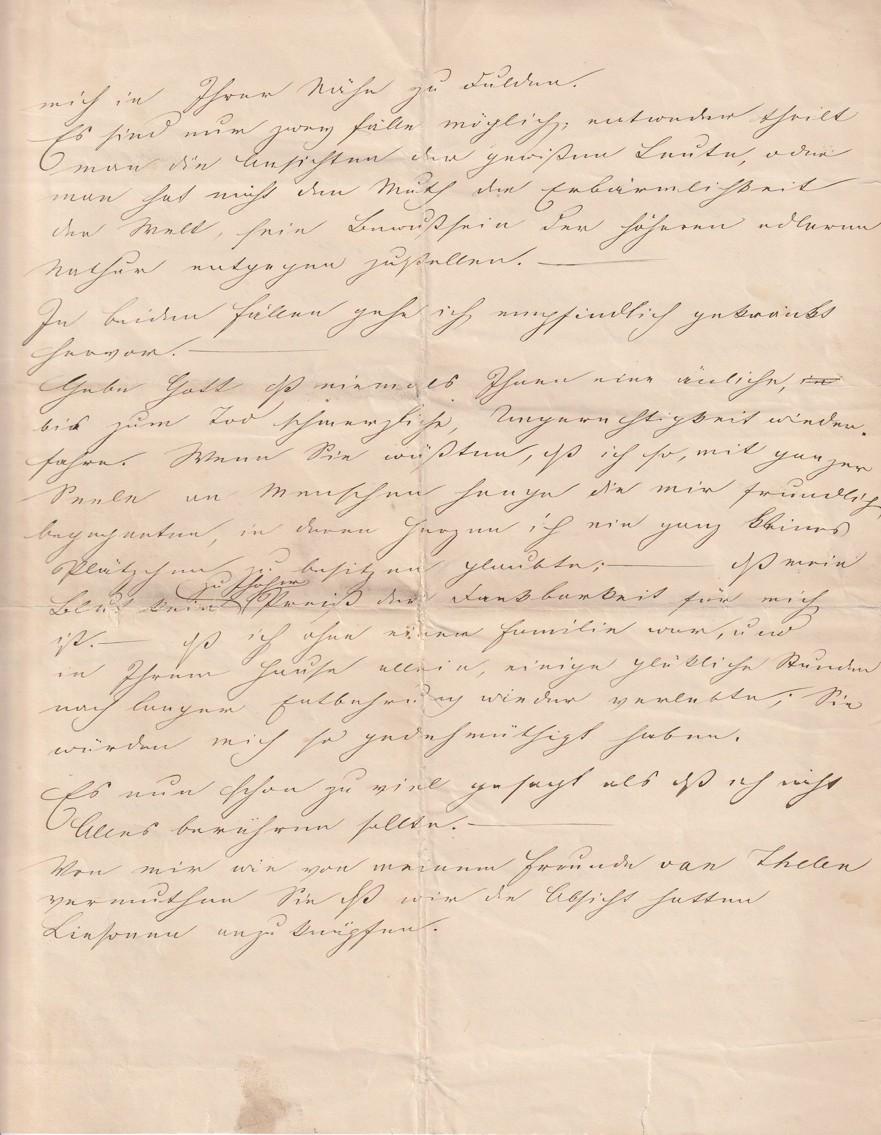 mich in Ihrer Nähe zu dulden.
Es sind nur zwey Fälle möglich; entweder theilt
man die Ansichten der gewißen Leute, oder
man hat nicht den Muth die Erbärmlichkeit
der Welt, sein Bewußtsein der höheren edleren
Nathur entgegen zustellen. —
In beiden Fällen gehe ich empfindlich gekränkt
hervor. —
Gebe Gott dß niemals Ihnen eine änliche, in
bis zum Tod schmerzliche, Ungerechtigkeit wieder-
fahre. Wenn Sie wüßten, dß ich so, mit ganzer
Seele an Menschen hange die mir freundlich
begegneten, in deren Herzen ich ein ganz kleines
Plätzchen zu besitzen glaubte; — dß mein
zu hoher
Blut kein Preiß der Dankbarkeit für mich
ist. — dß ich ohne einer Familie war, und
in Ihrem Hause allein, einige glükliche Stunden
nach langer Entbehrung wieder verlebte; Sie
würden mich so gedehmüthigt haben.
Es nun schon zu viel gesagt als dß ich nicht
Alles berühren sollte. —
Von mir wie von meinem Freunde van Thelen
vermuthen Sie dß wir die Absicht hatten
Liesonen anzuknüpfen.